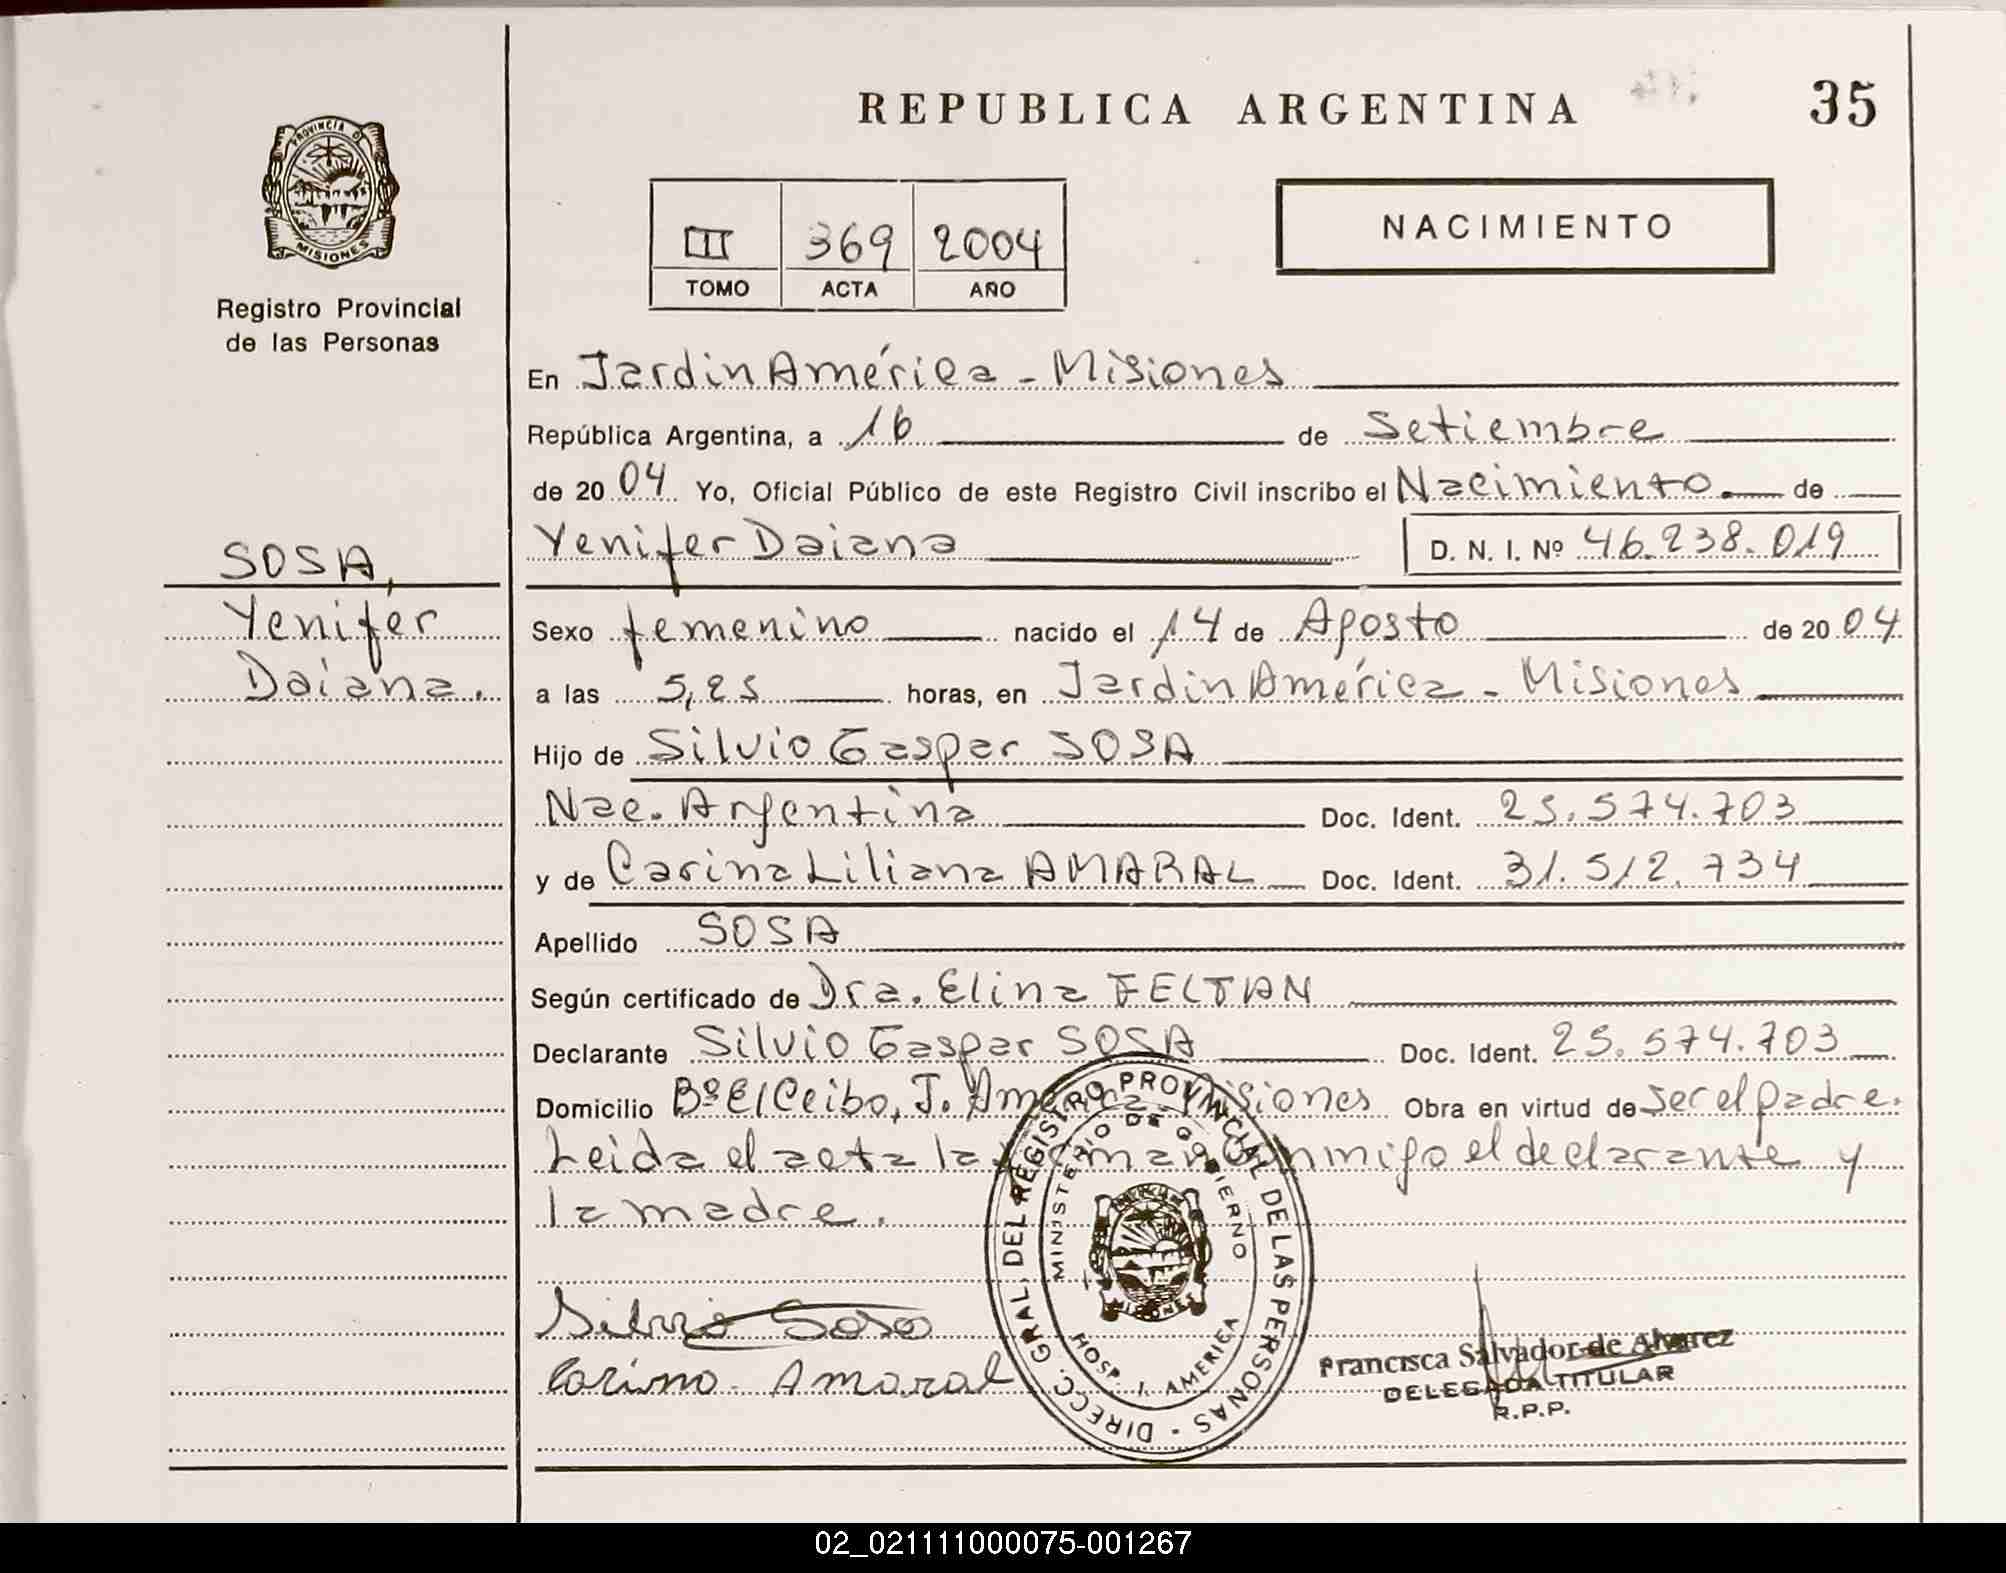 REPUBLICA ARGENTINA
35
PROVINCIA D
MISIONES
Registro Provincial
de las Personas
III 369 2004
TOMO ACTA AÑO
NACIMIENTO
En Jardin América - Misiones
República Argentina, a 16 de Setiembre
de 2004 Yo, Oficial Público de este Registro Civil inscribo el Nacimiento de
Yenifer Daiana D. N. I. Nº 46.238.019
SOSA,
Yenifer
Daiana.
Sexo femenino nacido el 14 de Agosto de 2004
a las 5,25 horas, en Jardin América - Misiones
Hijo de Silvio Gaspar SOSA
Nac. Argentina Doc. Ident. 25.574.703
y de Carina Liliana AMARAL Doc. Ident. 31.512.734
Apellido SOSA
Según certificado de Dra. Elina FELTAN
Declarante Silvio Gaspar SOSA Doc. Ident. 25.574.703
Domicilio Bº El Ceibo, J. América - Misiones Obra en virtud de ser el padre.
Leida el acta la firman conmigo el declarante y
la madre.
DIRECC. GRAL. DEL REGISTRO PROVINCIAL DE LAS PERSONAS -
MINISTERIO DE GOBIERNO
MISIONES
HOSP. J. AMERICA
Silvio Sosa
Carina Amaral
Francisca Salvador de Alvarez
DELEGADA TITULAR
R.P.P.
02_021111000075-001267